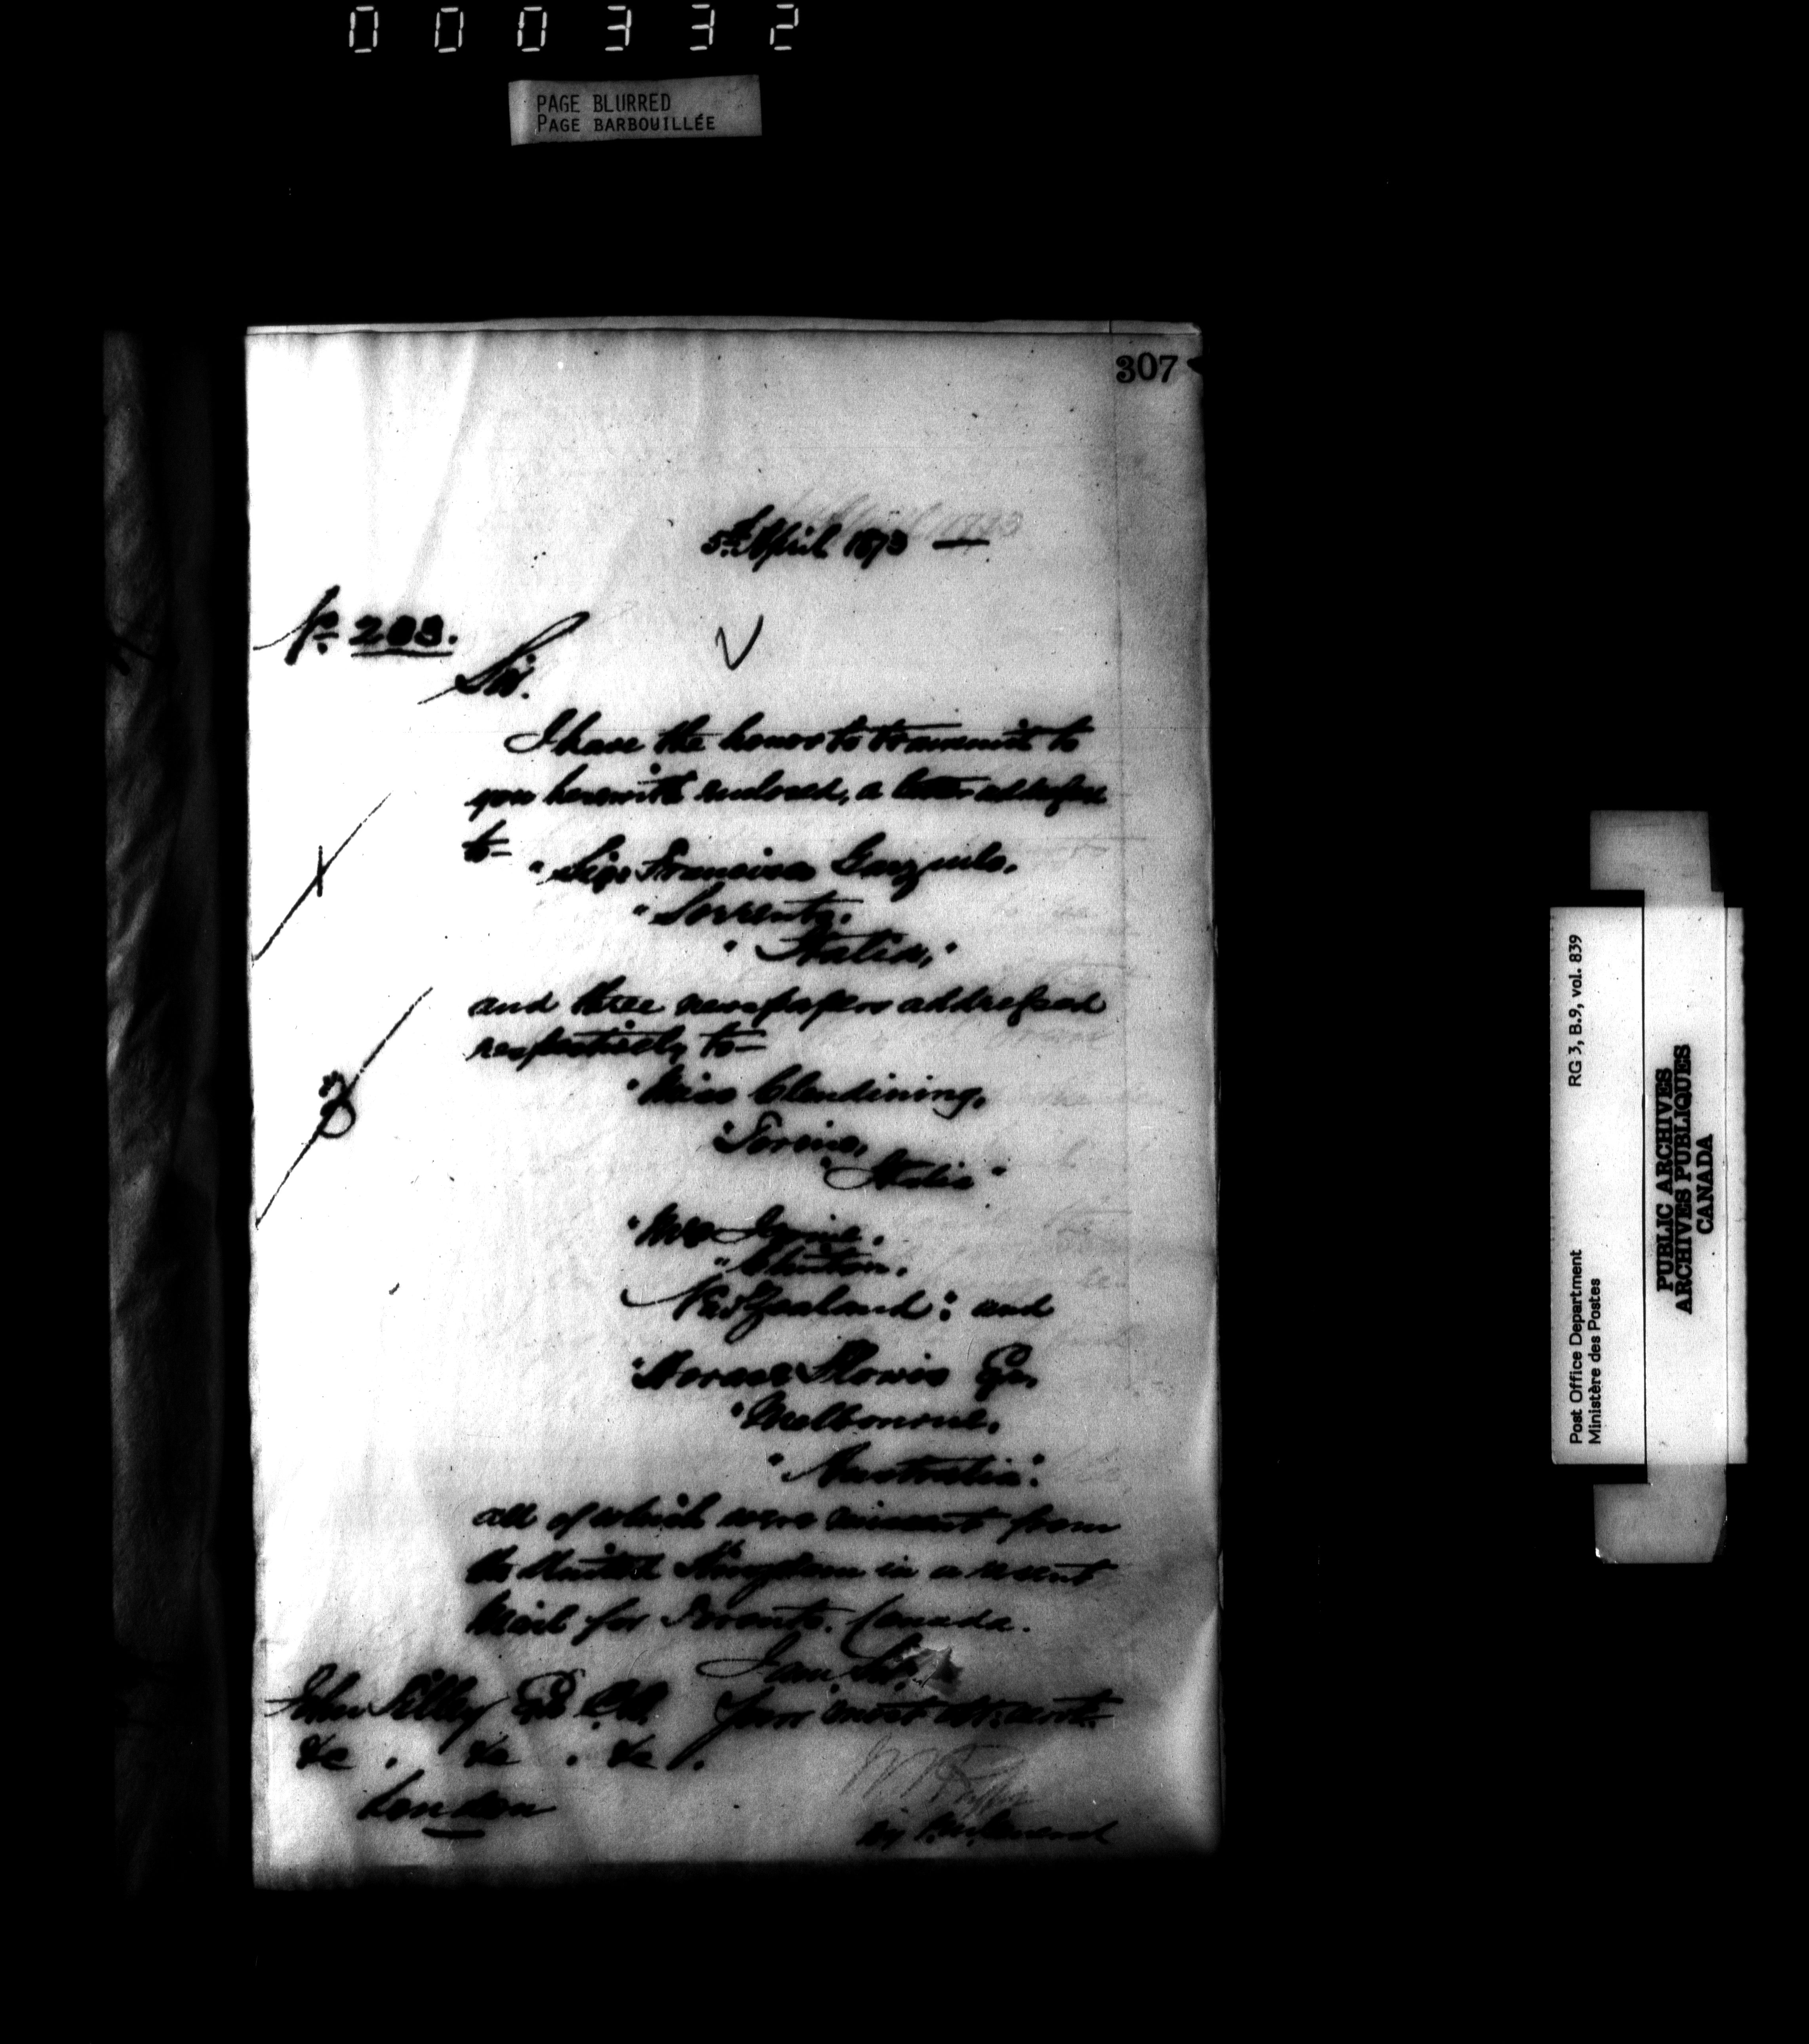 000332
PAGE BLURRED
PAGE BARBOUILLÉE
307
5th April 1873
p. 203.
Sir.
I have the honor to transmit to
you herewith enclosed, a letter addressed
to—
"Sigr Francisco
"Sorrento.
"Italia,"
and three newspapers addressed
respectively to—
"Miss Clendining,
"Torino,
"Italia"
"Mrs Irvine.
"Clinton.
New Zealand: and
"Horace Esq.
"Melbourne.
"Australia".
all of which were missent from
the United Kingdom in a recent
Mail for Toronto. Canada.
I am, Sir,
John Tilley Esq C.B. Your most obt. servt.
&c . &c . &c .
London
Dy P.M. General
Post Office Department RG 3, B.9, vol. 839
Ministère des Postes
PUBLIC ARCHIVES
ARCHIVES PUBLIQUES
CANADA